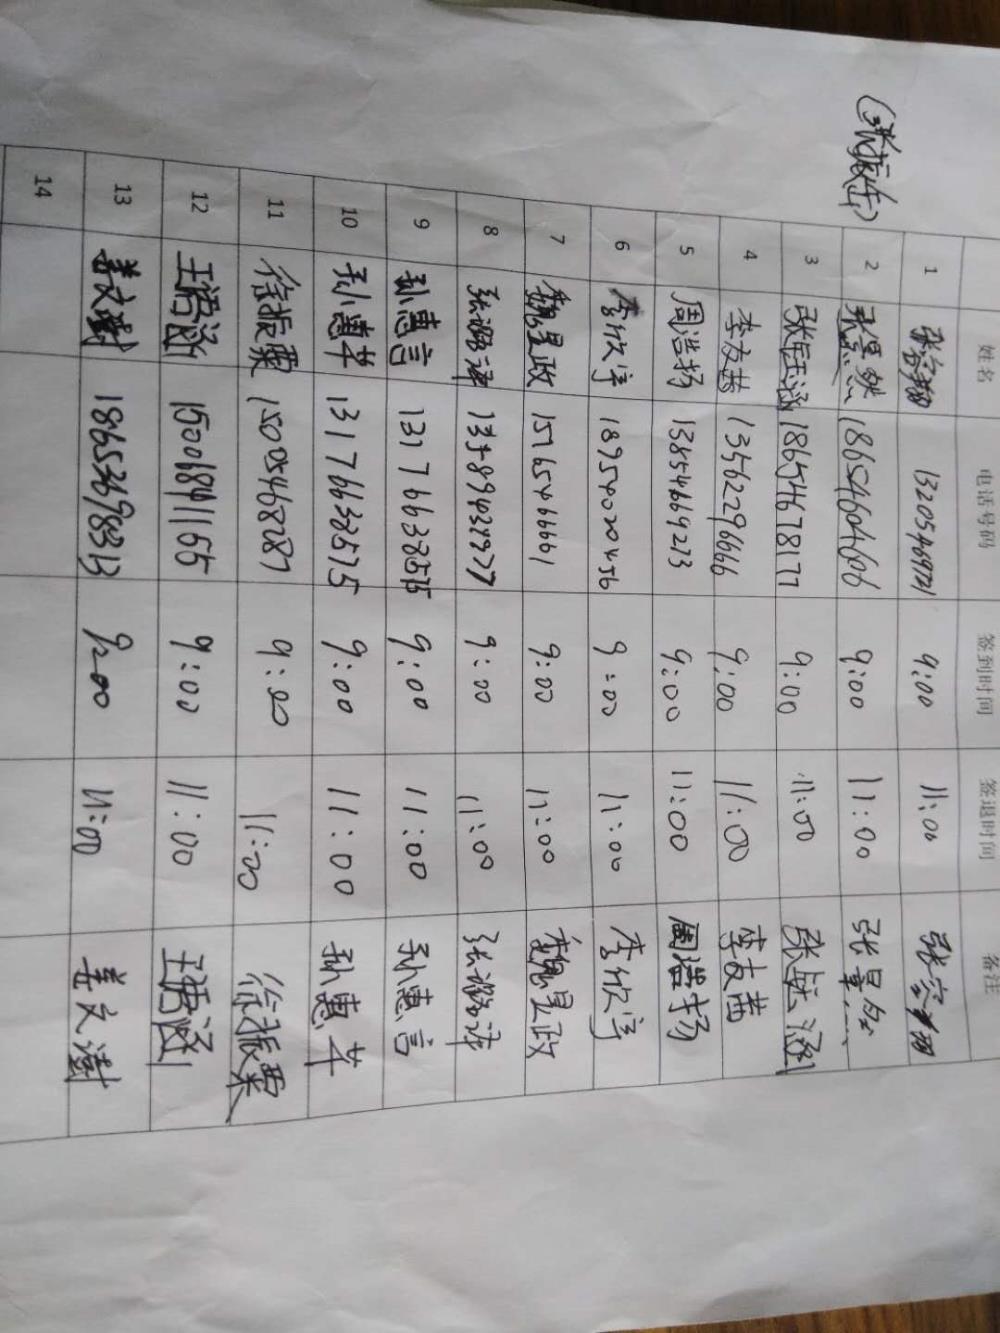 (张振生)
姓名 电话号码 签到时间 签退时间 备注
1 9:00 11:00
2 张景然 18654604606 9:00 11:00 张景然
3 张钰涵 18654678177 9:00 11:00 张钰涵
4 李友茜 13562296666 9:00 11:00 李友茜
5 周浩扬 13854669213 9:00 11:00 周浩扬
6 李欣宇 18954020456 9:00 11:00 李欣宇
7 魏昱政 15765466661 9:00 11:00 魏昱政
8 张潞译 9:00 11:00 张潞译
9 孙惠言 13176638515 9:00 11:00 孙惠言
10 孙惠芊 13176638515 9:00 11:00 孙惠芊
11 徐振粟 15054682887 9:00 11:00 徐振粟
12 9:00 11:00
13 姜文澍 18653698313 9:00 11:00 姜文澍
14